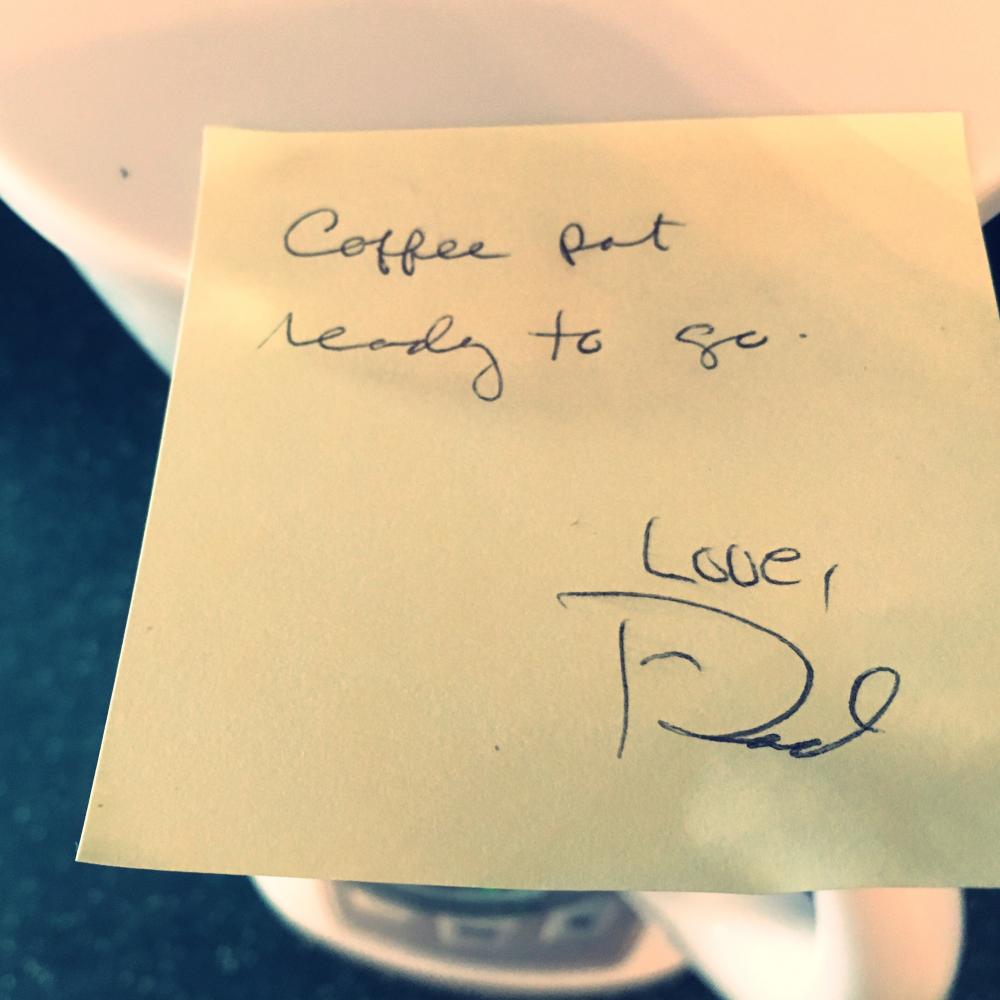 Coffee pot
ready to go.
Love,
Dad